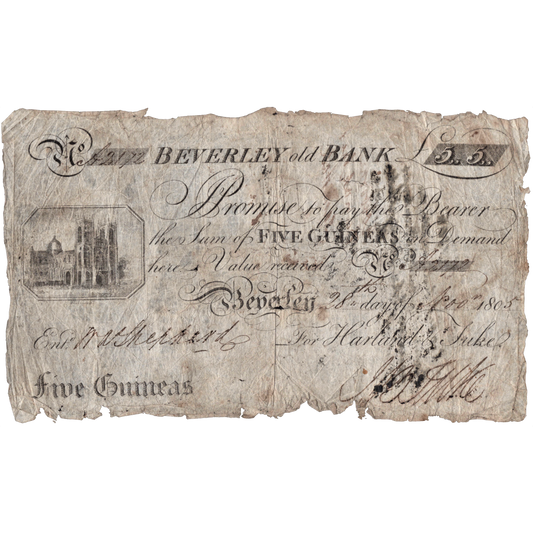 No. BEVERLEY old BANK £5.,5.,
I Promise to pay the Bearer
the Sum of FIVE GUINEAS on Demand
here Value received No.
Beverley 28th day of Novr. 1805
Entd. Shephard For Harland & Tuke
Five Guineas